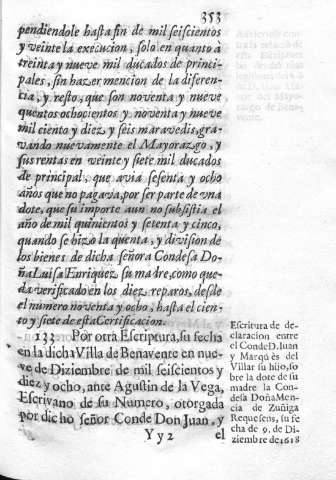 353
pendiendole hasta fin de mil seiscientos
y veinte la execucion, solo en quanto à
treinta y nueve mil ducados de princi-
pales, sin hazer mencion de la diferen-
cia, y resto, que son noventa y nueve
quentos ochocientos y noventa y nueve
mil ciento y diez y seis maravedis, gra-
vando nuevamente el Mayorazgo, y
sus rentas en veinte y siete mil ducados
de principal, que avia sesenta y ocho
años que no pagava, por ser parte de vna
dote, que su importe aun no subsistia el
año de mil quinientos y setenta y cinco,
quando se hizo la quenta, y division de
los bienes de dicha señora Condesa Do-
ña Luisa Enriquez su madre, como que-
da verificado en los diez reparos, desde
el numero noventa y ocho, hasta el cien-
to y siete de esta Certificacion.
133 Por otra Escriptura, su fecha
en la dicha Villa de Benavente en nue-
ve de Diziembre de mil seiscientos y
diez y ocho, ante Agustin de la Vega,
Escrivano de su Numero, otorgada
por dicho señor Conde Don Juan, y
Yy2 el
Escritura de de-
claracion entre
el Conde D. Juan
y Marquès del
Villar su hijo, so
bre la dote de su
madre la Con-
desa Doña Men-
cia de Zuñiga
Requesens, su fe
cha de 9. de Di-
ziembre de 1618